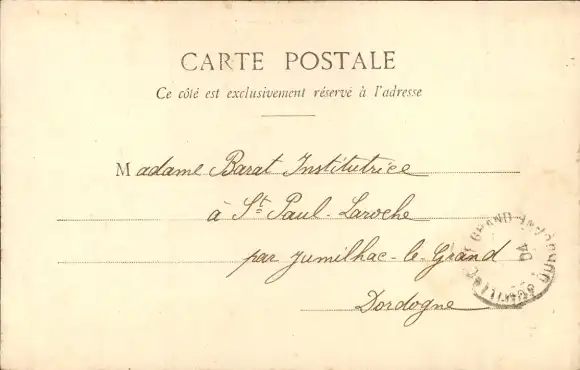 CARTE POSTALE
Ce côté est exclusivement réservé à l'adresse
Madame Barat Institutrice
à St Paul-Laroche
par Jumilhac-le-Grand
Dordogne
GRAND
04